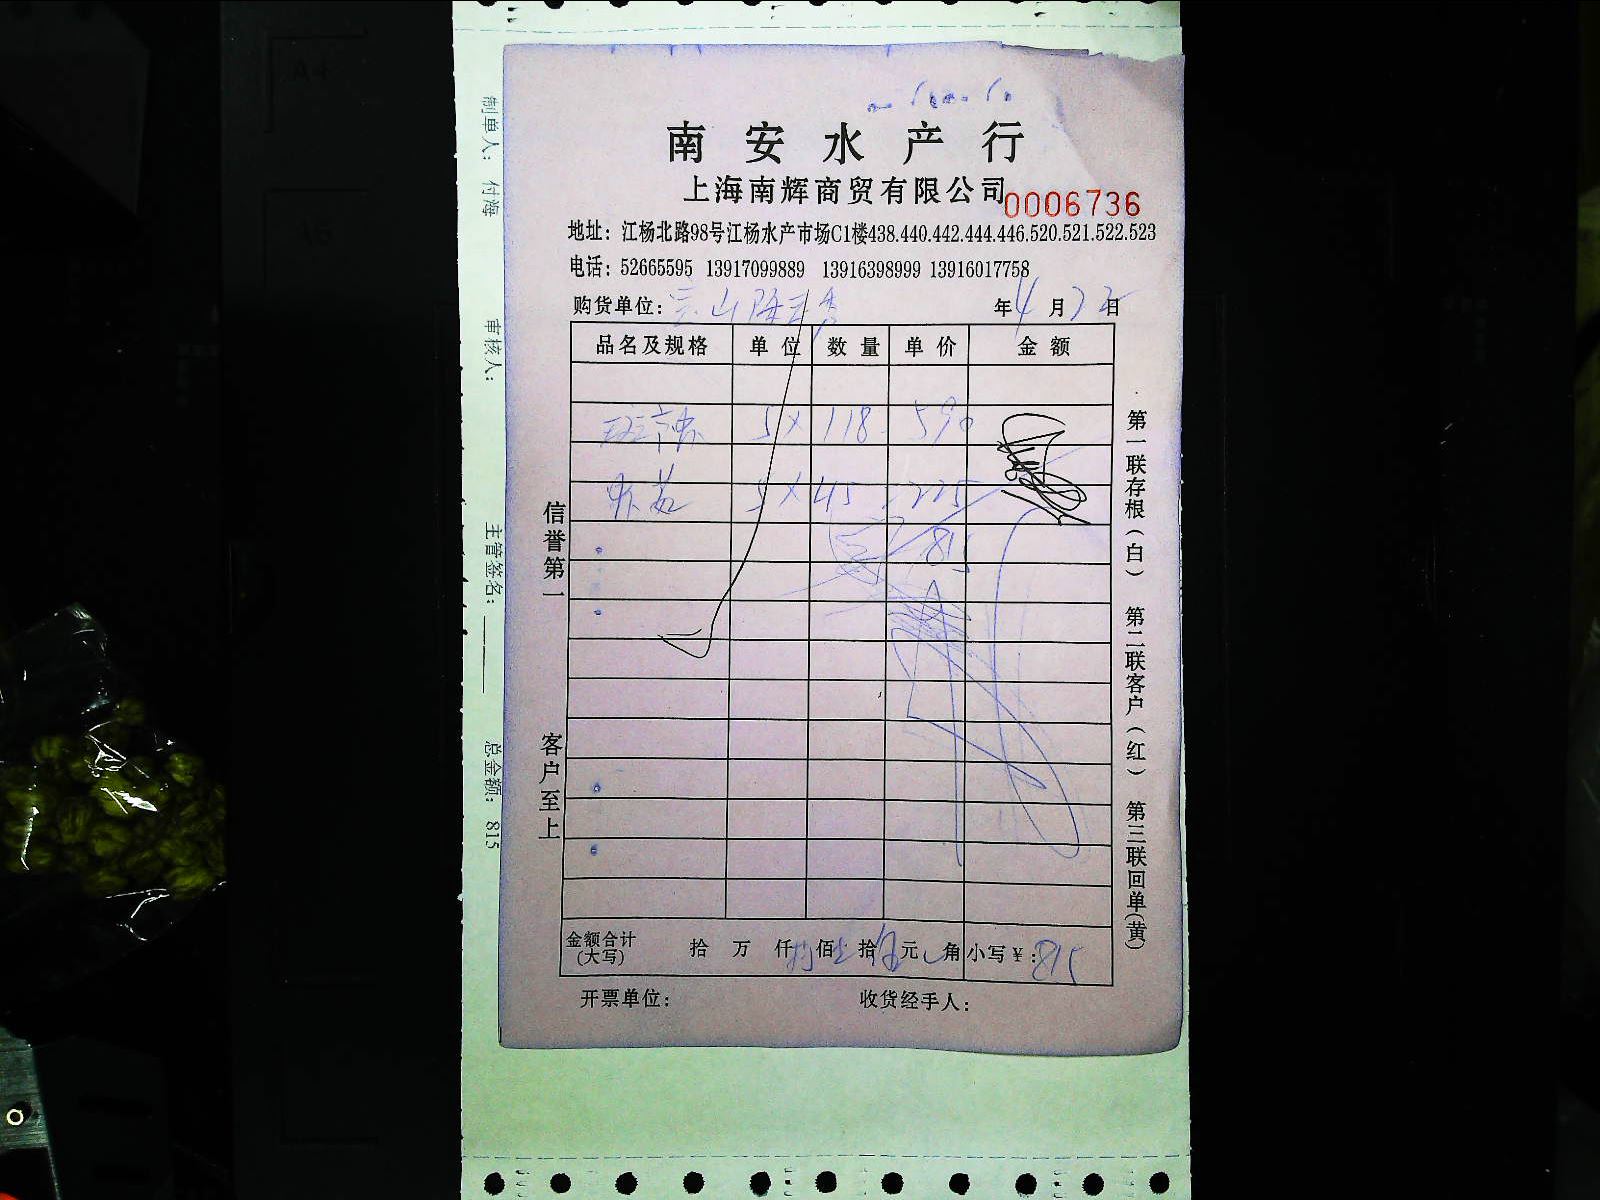 南安水产行
上海南辉商贸有限公司 0006736
地址：江杨北路98号江杨水产市场C1楼438.440.442.444.446.520.521.522.523
电话：52665595 13917099889 13916398999 13916017758
购货单位： 年4月 日
品名及规格 单位 数量 单价 金额
5 × 118 590
5 × 45 225
815
金额合计(大写) 拾 万 仟 佰 拾 元 角 小写￥:815
开票单位： 收货经手人：
信誉第一
客户至上
第一联存根(白)
第二联客户(红)
第三联回单(黄)
制单人：付海
审核人：
主管签名：
总金额：815